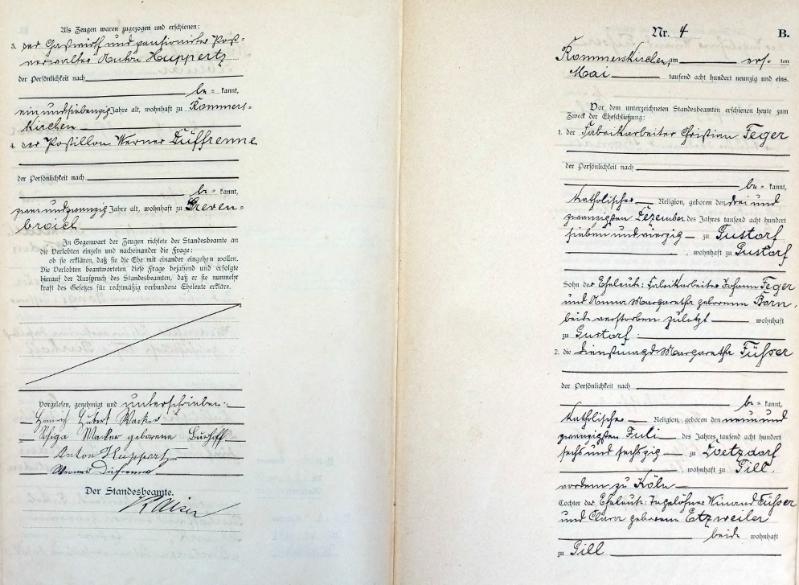 Als Zeugen waren zugezogen und erschienen:
3. der Gastwirth und pensionirter Post-
verwalter Anton Huppertz
der Persönlichkeit nach
be = kannt,
einundsiebenzig Jahre alt, wohnhaft zu Rommers-
kirchen
4. der Postillon Werner Düffrenne
der Persönlichkeit nach
be = kannt,
zweiundzwanzig Jahre alt, wohnhaft zu Greven-
broich
In Gegenwart der Zeugen richtete der Standesbeamte an
die Verlobten einzeln und nacheinander die Frage:
ob sie erklären, daß sie die Ehe mit einander eingehen wollen.
Die Verlobten beantworteten diese Frage bejahend und erfolgte
hierauf der Ausspruch des Standesbeamten, daß er sie nunmehr
kraft des Gesetzes für rechtmäßig verbundene Eheleute erkläre.
Vorgelesen, genehmigt und unterschrieben
Heinrich Hubert Wacker
Wacker geborene
Anton Huppertz
Werner Düfrenne
Der Standesbeamte.
Nr. 4
B.
Rommerskirchen, am ers- ten
Mai tausend acht hundert neunzig und eins.
Vor dem unterzeichneten Standesbeamten erschienen heute zum
Zweck der Eheschließung:
1. der Fabrikarbeiter Christian Feger
der Persönlichkeit nach
be = kannt,
katholischer Religion, geboren den drei und
zwanzigsten Dezember des Jahres tausend acht hundert
sieben und vierzig zu Gustorf
, wohnhaft zu Gustorf
Sohn der Eheleute: Fabrikarbeiter Johann Feger
und Anna Margaretha geborenen Born
beide verstorben zuletzt wohnhaft
zu Gustorf
2. die Dienstmagd Margaretha Füsser
der Persönlichkeit nach
be = kannt,
katholischer Religion, geboren den neun und
zwanzigsten Juli des Jahres tausend acht hundert
sechs und sechszig zu Evetzdorf
wohnhaft zu Gill
vordem zu Köln
Tochter der Eheleute: Tagelöhner Winand Füsser
und Clara geborenen Etzweiler
beide wohnhaft
zu Gill